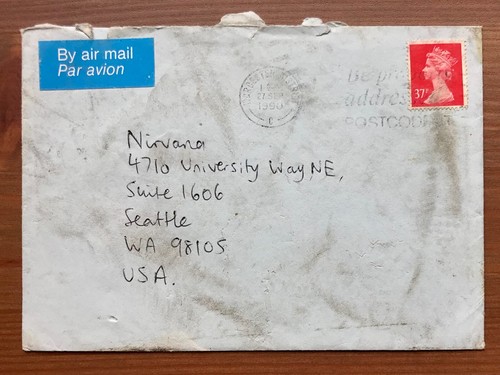 By air mail
Par avion
1990
37
Be pr
address
POSTCODE
Nirvana
4710 University Way NE,
Suite 1606
Seattle
WA 98105
USA.